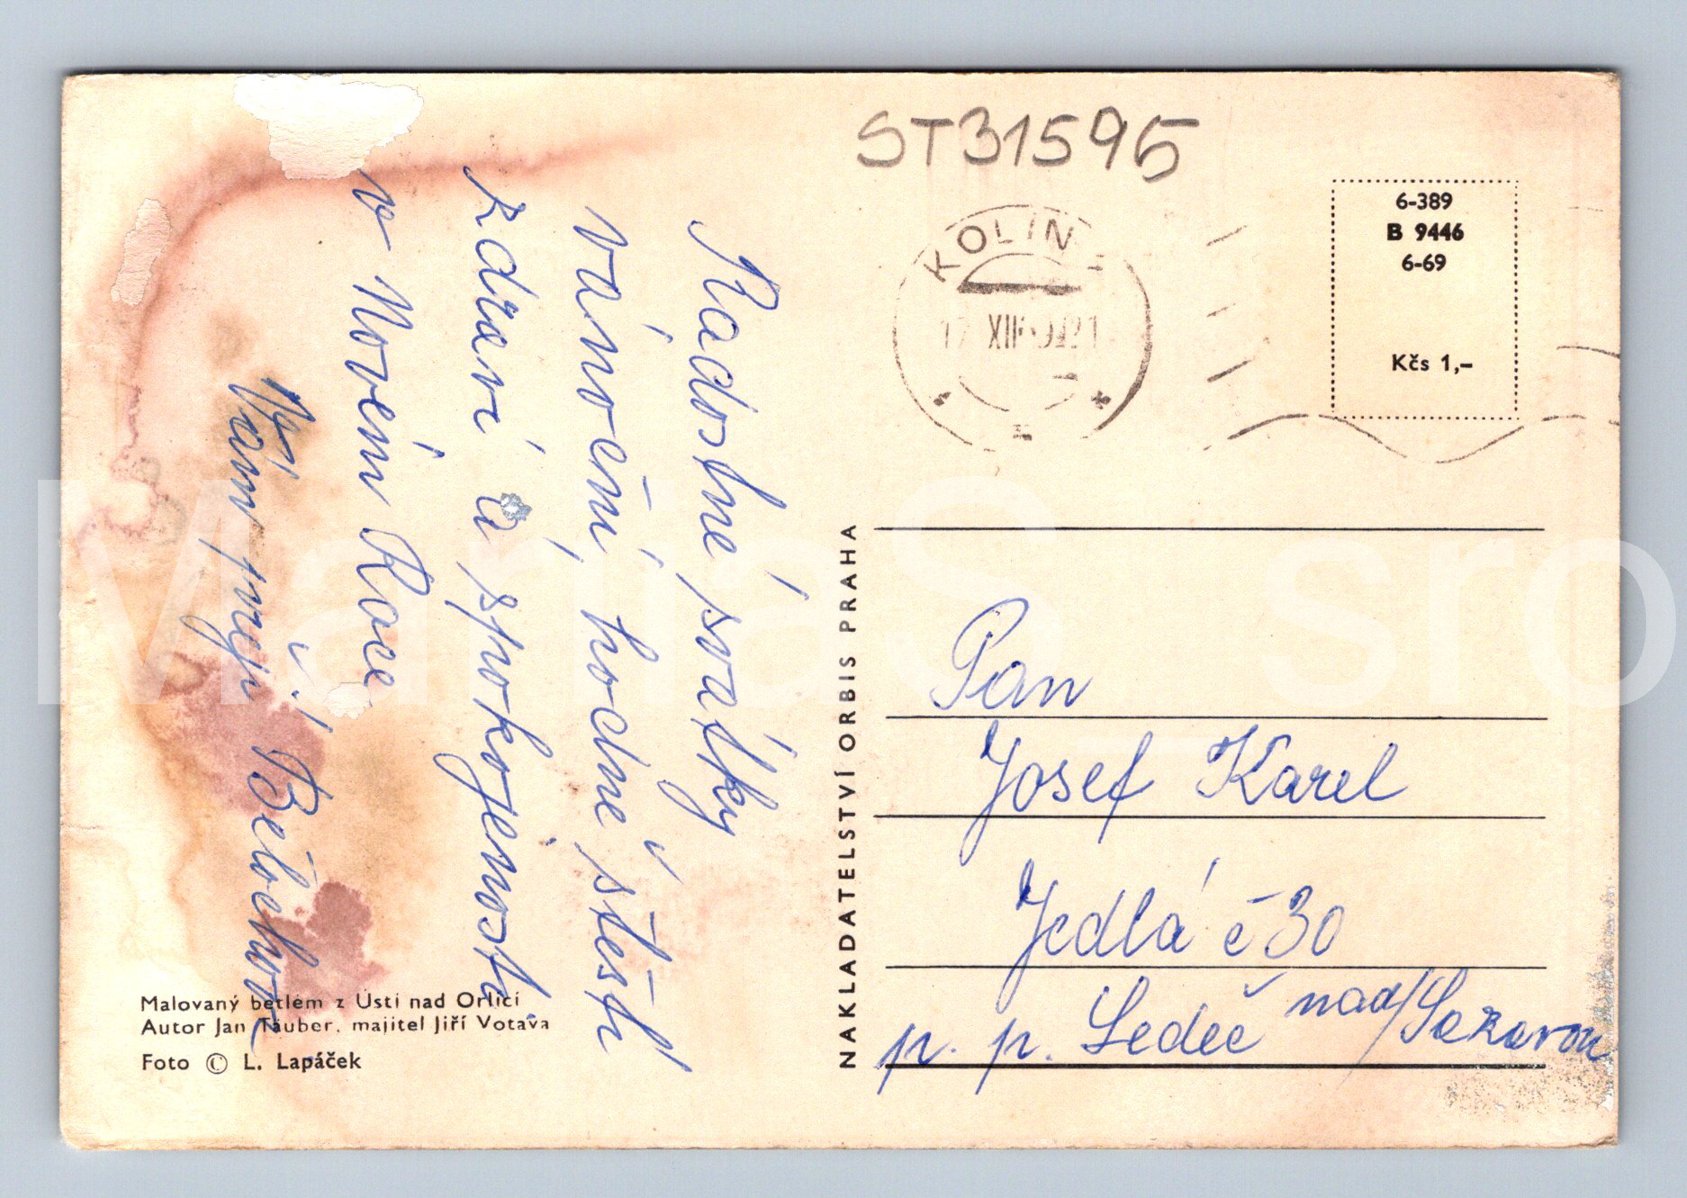 ST31595
KOLÍN
6-389
B 9446
6-69
Kčs 1,–
Radostné svátky
vánoční, hodně štěstí
zdraví a spokojenosti
v Novém Roce
Vám přejí Bělochov
NAKLADATELSTVÍ ORBIS PRAHA
Pan
Josef Karel
Jedlá č 30
p. p. Ledeč nad/Sázavou
Malovaný betlém z Ústí nad Orlicí
Autor Jan Täuber, majitel Jiří Votava
Foto © L. Lapáček
MariaS_sro